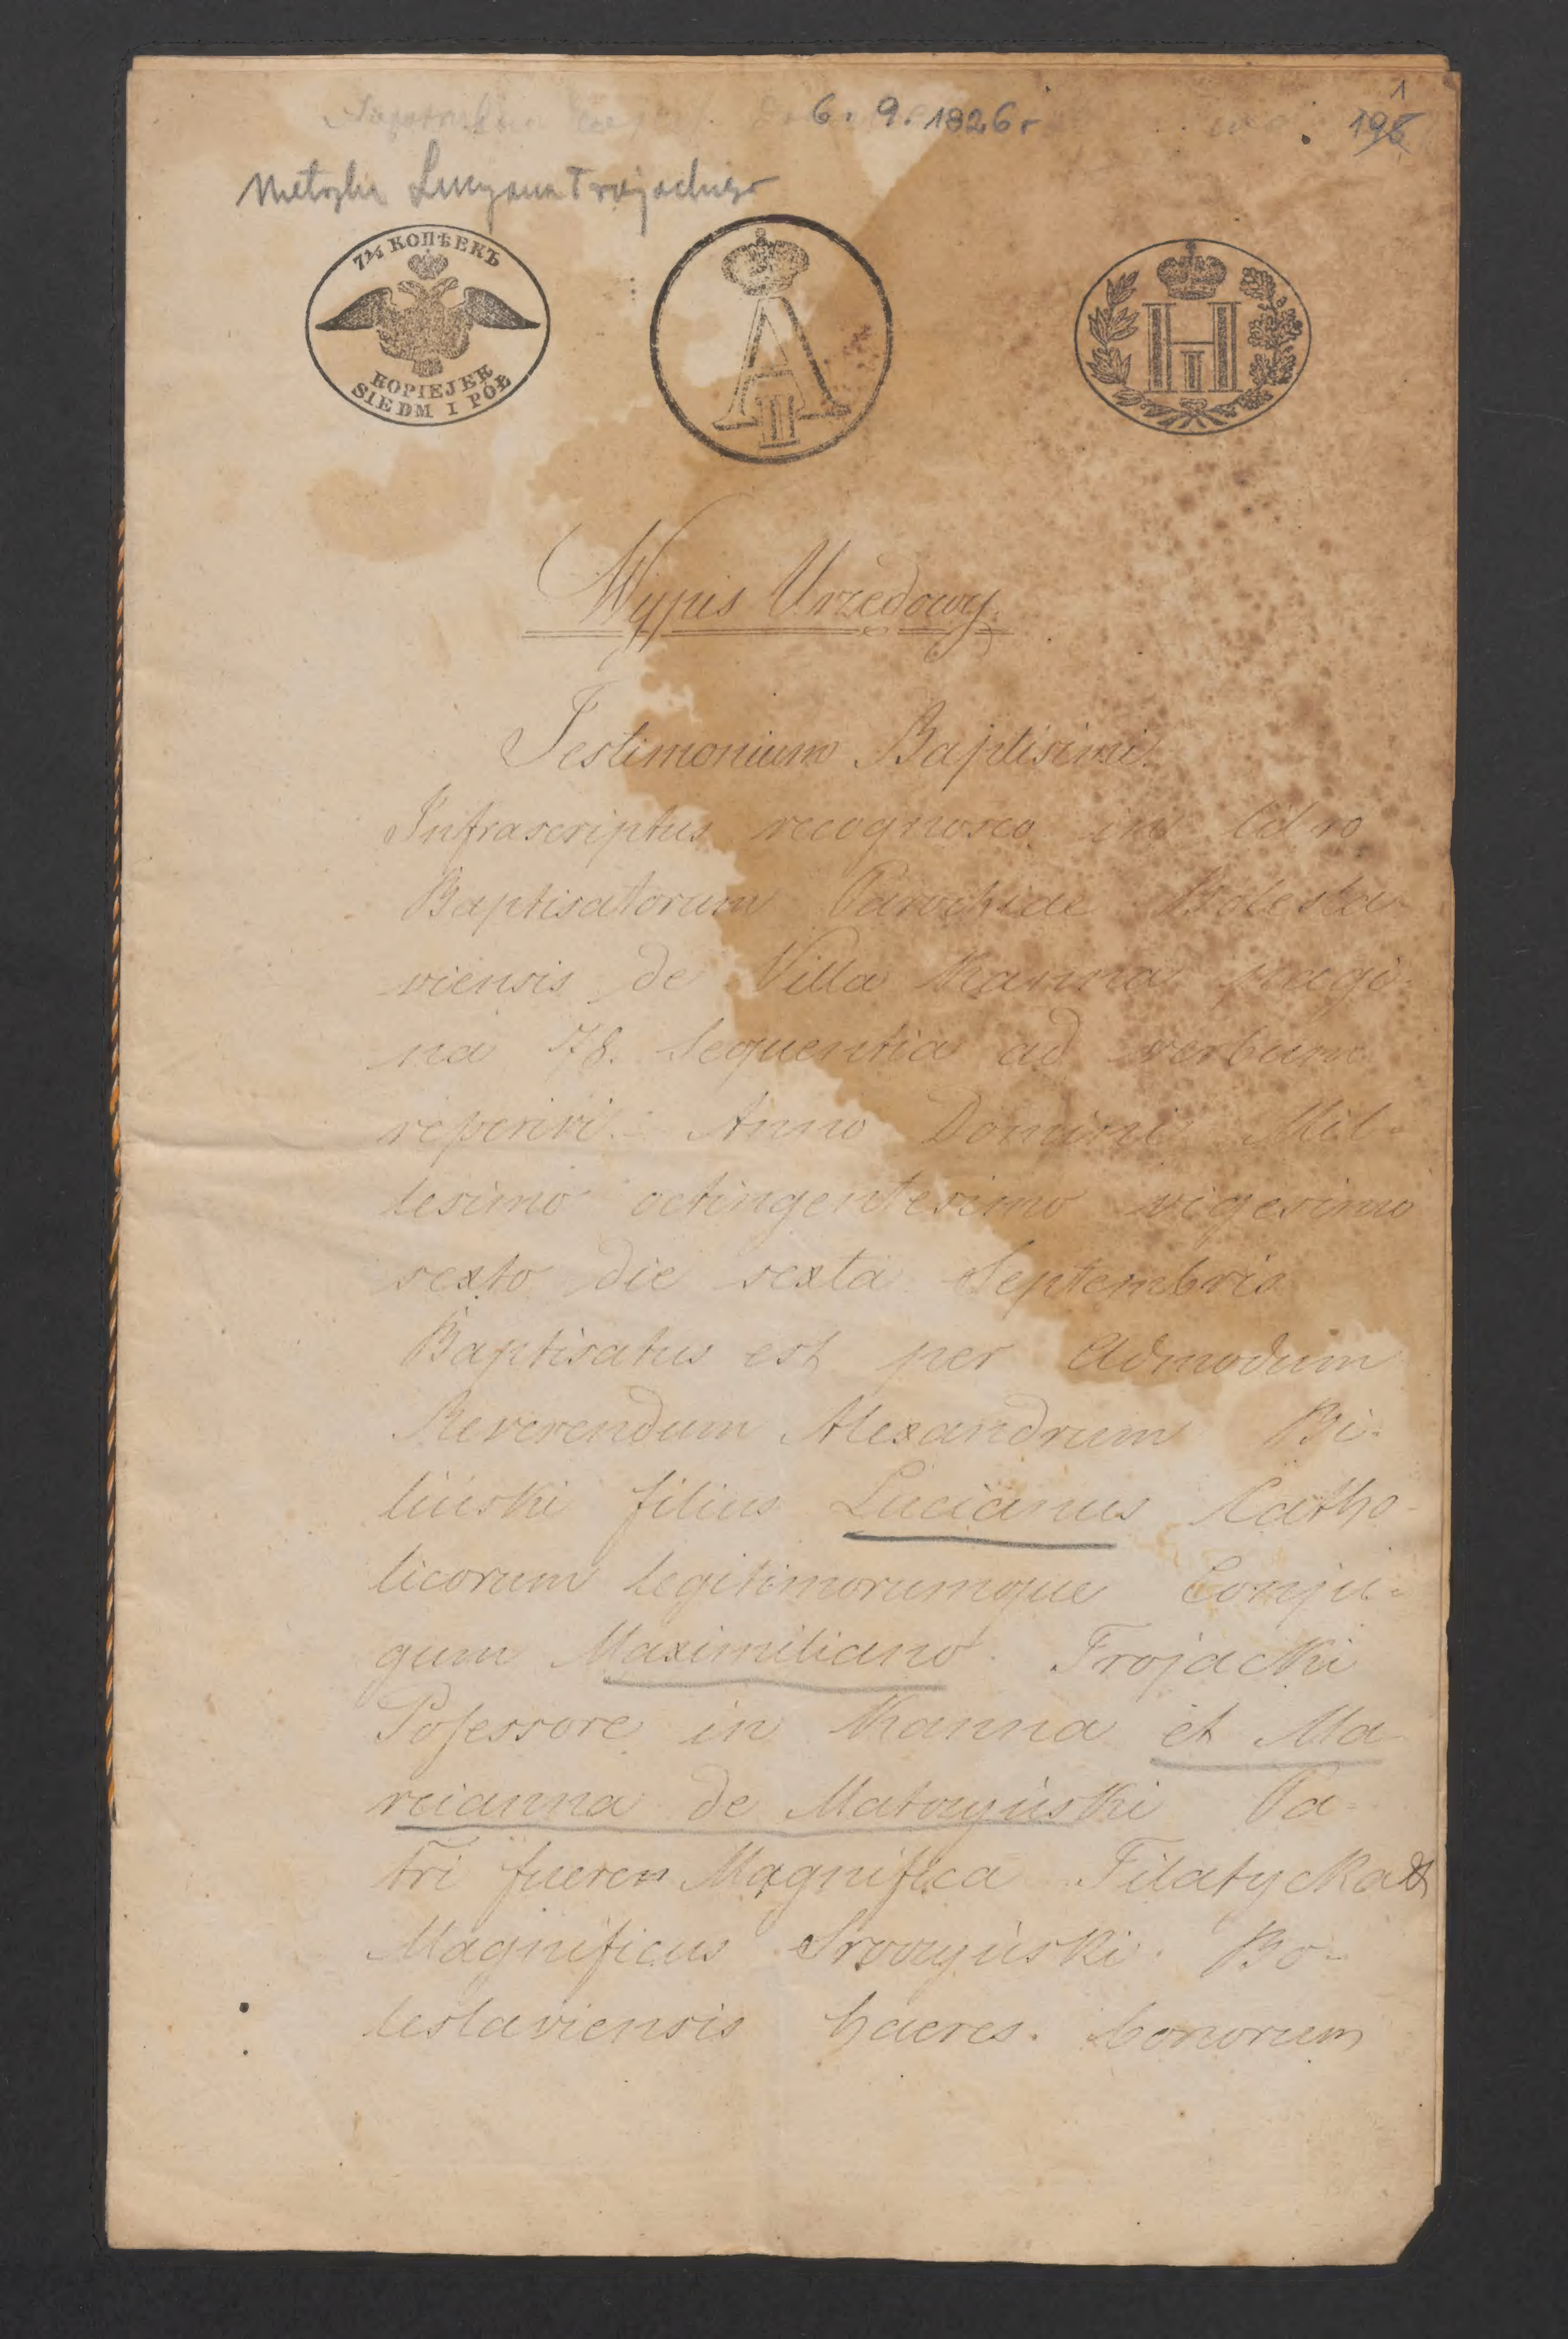 6. 9. 1826 r
1
196
Metryka Lucyana Trojackiego
7½ КОПѢЕКЪ
KOPIEJEK
SIEDM I PÓŁ
A II
H I
Wypis Urzędowy.
Testimonium Baptisimi.
Infrascriptus recognosco in
Baptisatorum Parochiae Bolesla-
viensis de Villa Kanna pagi-
na 178. Sequentia ad verbum
reperivi. Anno Domini Mil-
lesimo octingentesimo vigesimo
sexto die sexta Septembris
Baptisatus est per Admodum
Reverendum Alexandrum Bi-
liński filius Lucianus Catho-
licorum legitimorumque Conju-
gum Maximiliano Trojacki
Posessore in Kanna et Ma-
rcianna de Matczyński Pa-
tri fueren Magnifica Filatycka et
Magnificus Sroczyński. Bo-
leslaviensis haeres. bonorum